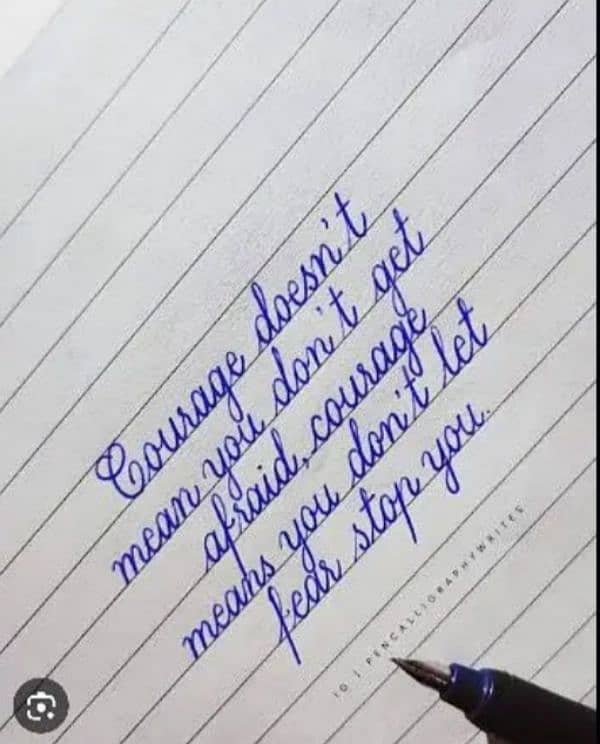 Courage doesn't
mean you don't get
afraid, courage
means you don't let
fear stop you.
IG | PENCALLIGRAPHYWRITES